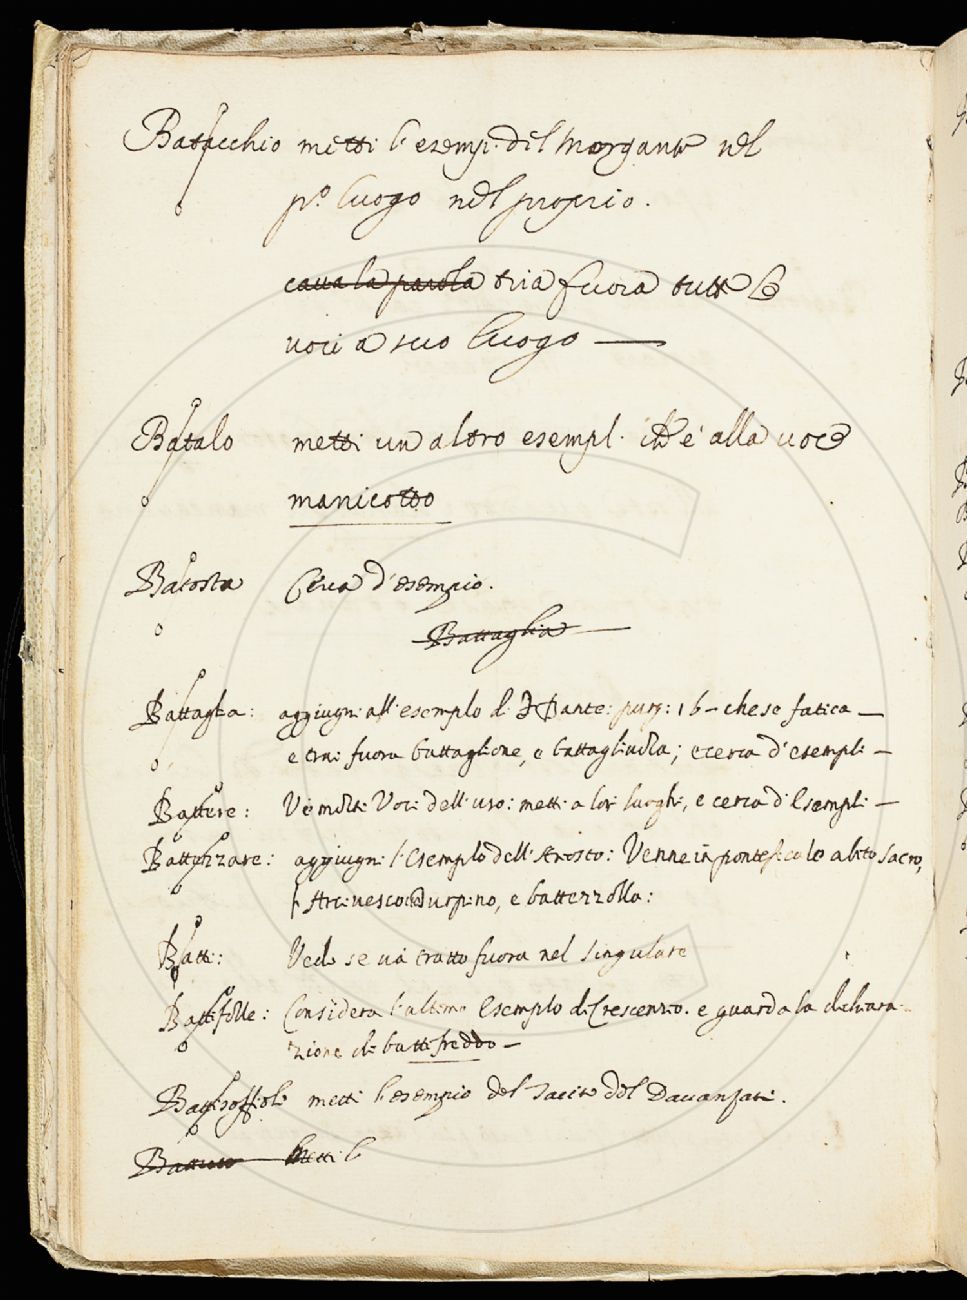 Batacchio metti l'esempi: del Morgante nel
p.o luogo nel proprio.
caua la parola tria fuora tutte le
uoci a suo luogo —
Batalo metti un altro esempl. ch'è alla uoce
manicotto
Batosta Cerca d'esempio.
Battaglia —
Battaglia: aggiugni all'esemplo di Dante: purg: 16 — che se fatica —
e trai fuora battaglione, e battagliuola; e cerca d'esempli —
Battere: V'è molti Voci dell'uso: metti a lor luoghi, e cerca d'Esempli —
Battezzare: aggiugni l'Esemplo dell'Ariosto: Venne in pontificale abito sacro,
l'Arciuesco Turpino, e battezzolla:
Batti: Vedi se uà tratto fuora nel singulare
Battifolle: Considera l'ultimo Esemplo di Crescenzio. e guarda la dichiara-
zione di battifreddo —
Battisoffiole metti l'esempio del Tacito del Dauanzati.
Battuto Metti l